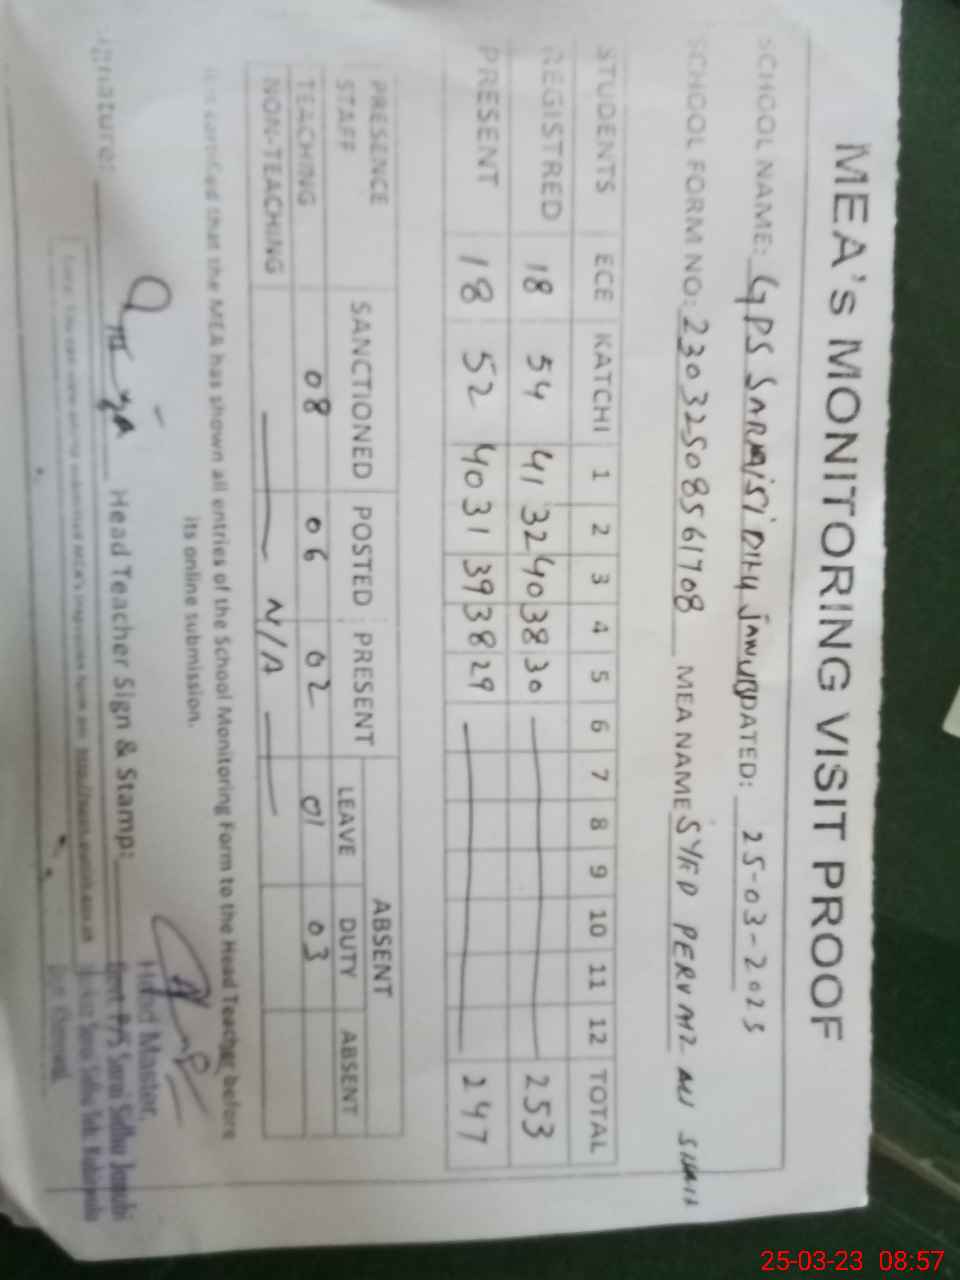 MEA's MONITORING VISIT PROOF
SCHOOL NAME: GPS SARAI SIDHU JANUBI DATED: 25-03-2023
SCHOOL FORM NO: 23032508561708 MEA NAME SYED PERVAIZ ALI SHAH
STUDENTS ECE KATCHI 1 2 3 4 5 6 7 8 9 10 11 12 TOTAL
REGISTRED 18 54 41 32 40 38 30 253
PRESENT 18 52 40 31 39 38 29 247
PRESENCE SANCTIONED POSTED PRESENT ABSENT
STAFF LEAVE DUTY ABSENT
TEACHING 08 06 02 01 03
NON-TEACHING N/A
It is certified that the MEA has shown all entries of the School Monitoring Form to the Head Teacher before
its online submission.
Signature: Head Teacher Sign & Stamp:
Head Master,
Govt P/S Sarai Sidhu Janubi
25-03-23 08:57